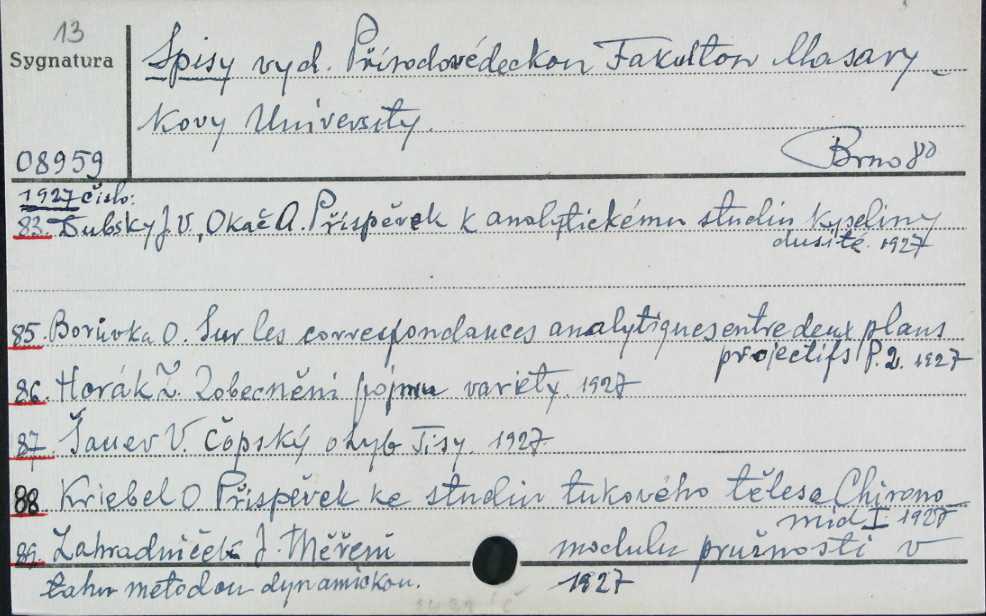 13
Sygnatura
Spisy vyd. Přírodovědeckou Fakultou Masary
kovy University.
08959
Brno 80
1927 číslo:
83. Dubsky J.V., Okač A. Příspěvek k analytickému studiu kyseliny
dusité. 1927
85. Borůvka O. Sur les correspondances analytiques entre deux plans
projectifs P.2. 1927
86. Horák Z. Zobecnění pojmu variety. 1927
87. Šauer V. Čopský ohyb Tisy. 1927
88 Kriebel O Příspěvek ke studiu tukového tělesa Chirono
mid I. 1927
89. Zahradníček J. Měření modulu pružnosti v
tahu metodou dynamickou. 1927